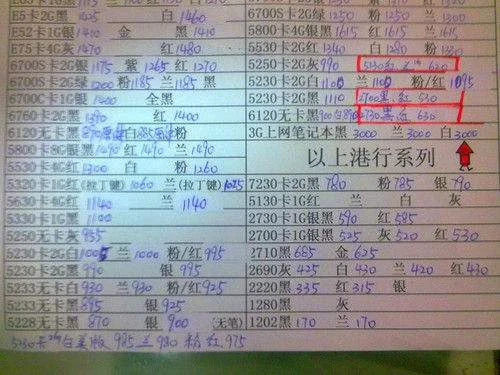 E5卡2G黑 1425 白 1460
E52卡1G银 1410 金 黑 1410
E75卡4G灰 1475 红 1480
6700S卡2G银 1175 紫 1265 红 1270
6700S卡2G绿 1200 粉 1185 兰 1185 黑
6700C卡1G银 1400 全黑
6760卡2G黑 1390 红 1400
6120无卡黑 870 粉
5800卡8G银黑 1490 红 1490 兰 1490
5530卡4G红 1300 白 粉 1260
5320卡1G红(拉丁键) 1060 兰(拉丁键) 1025
5630卡4G红 1140 兰 1140
5330卡1G黑 1100
5250无卡灰 955
5230卡2G白 1005 兰 1000 粉/红 995
5230卡2G黑 990 银 995
5233无卡白 930 兰 930 粉/红 925
5233无卡黑 895 银 925
5228无卡黑 870 银 900 (无笔)
5130卡2G白 985 兰 980 粉 红 975
6700S卡2G绿 1250 粉 1250 兰 1250
5800卡4G银黑 1615 兰 1615 红 1615
5530卡2G红 1340 白 1280 粉 1330
5250卡2G灰 990 5130红 兰 1G 620
5230卡2G白 1105 兰 1100 粉/红 1095
5230卡2G黑 1110 2700黑 红 530
6120无卡黑 2730黑 红 630
3G上网笔记本黑 3000 兰 3000 白 3000
以上港行系列
7230卡2G黑 780 粉 785 银 790
5130卡1G红 兰 白 灰
2730卡1G黑 590 红 585
2700卡1G银黑 525 灰 520 红 530
2710黑 685 金 625
2690灰 425 白 430 兰 420 红 430
2220黑 335 红 315 银
1280黑 灰
1202黑 170 兰 170